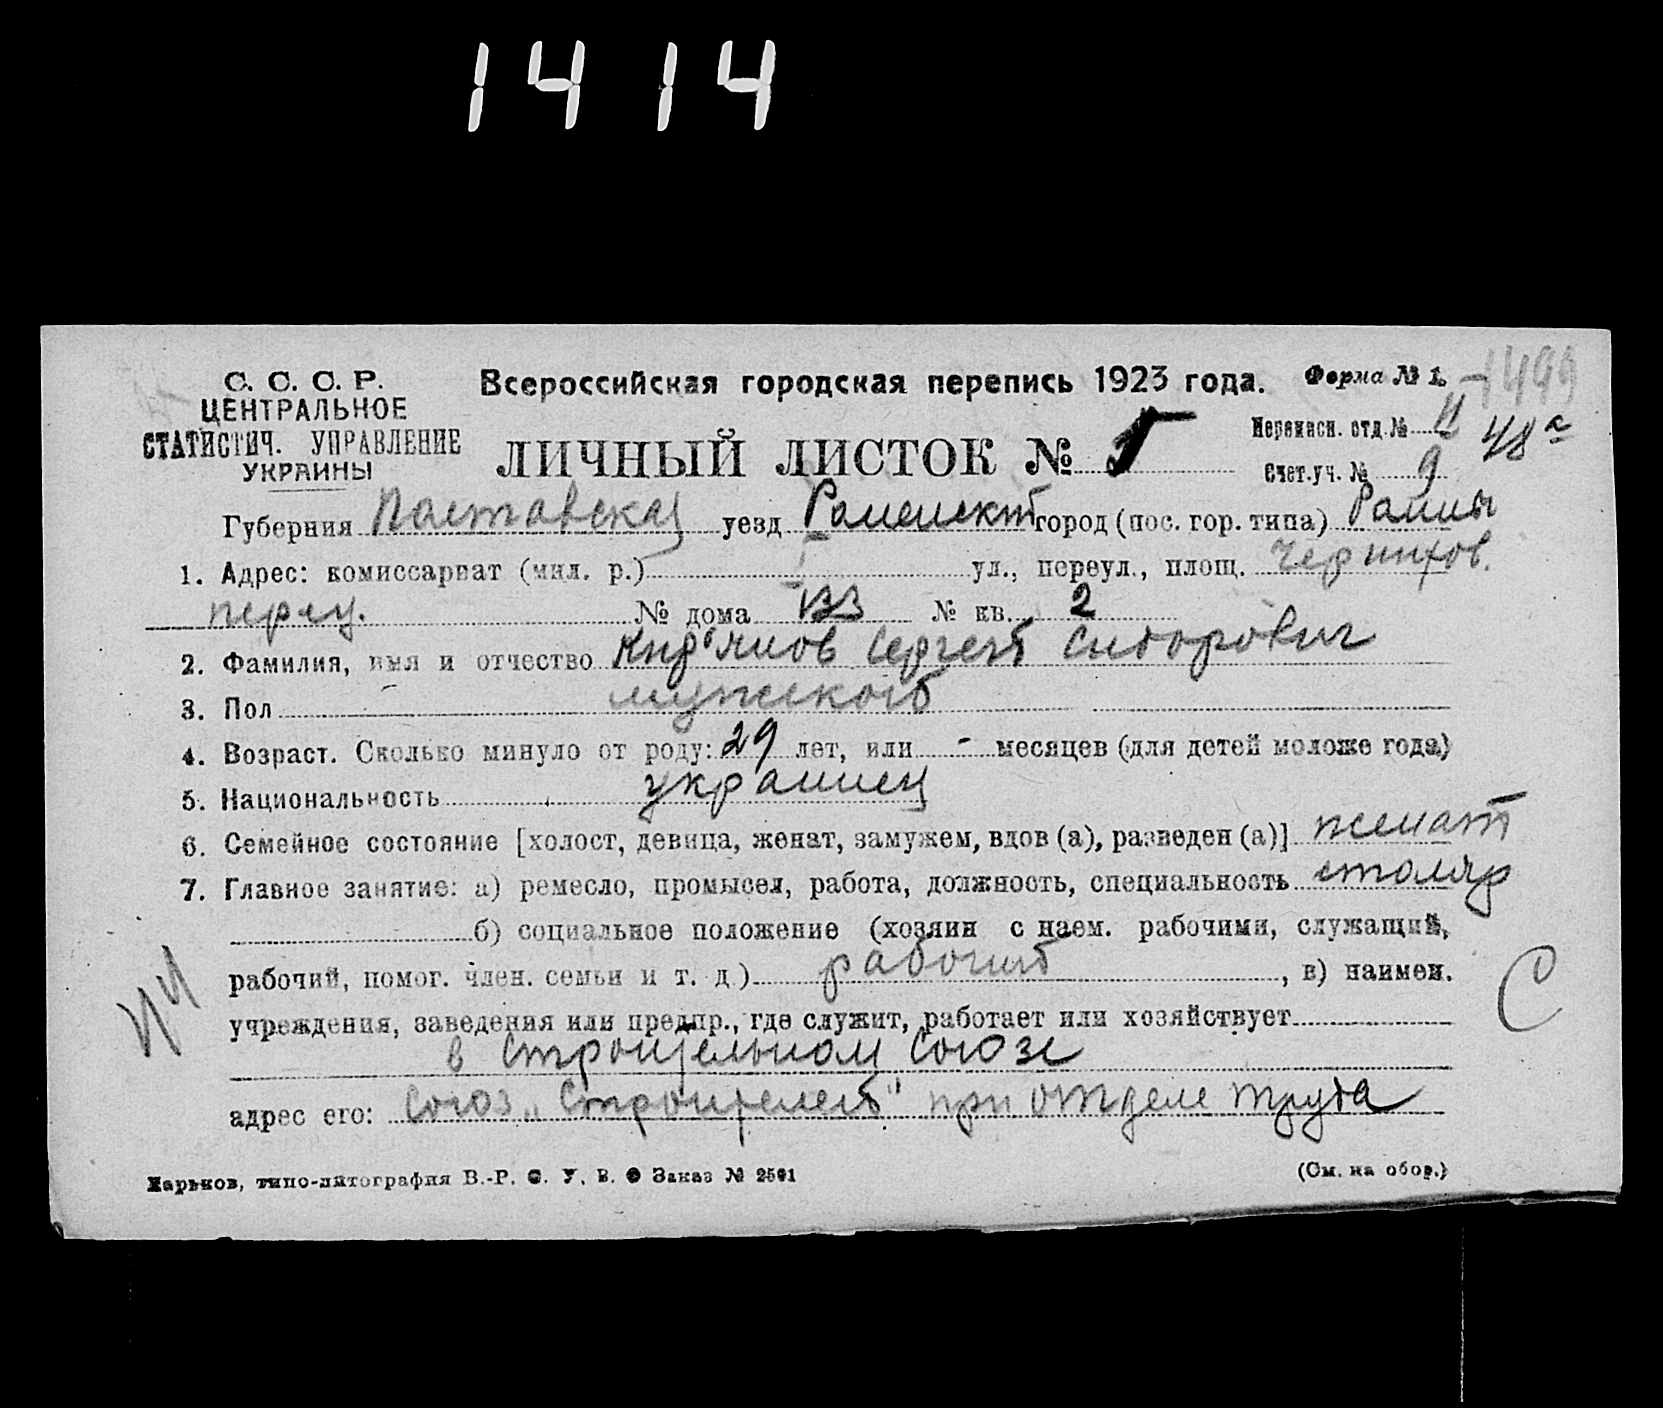 1414
С. С. С. Р.
ЦЕНТРАЛЬНОЕ
СТАТИСТИЧ. УПРАВЛЕНИЕ
УКРАИНЫ
Всероссийская городская перепись 1923 года.
Форма № 1.
ЛИЧНЫЙ ЛИСТОК №
Переписн. отд. № 11 48
Счет. уч. № 9
Губерния Полтавская уезд Роменский город (пос. гор. типа) Ромны
1. Адрес: комиссариат (мил. р.) ул., переул., площ. Чернихов.
переу. № дома № кв. 2
2. Фамилия, имя и отчество Кирьянов Сергей Сидорович
3. Пол мужской
4. Возраст. Сколько минуло от роду: 29 лет, или - месяцев (для детей моложе года)
5. Национальность украинец
6. Семейное состояние [холост, девица, женат, замужем, вдов (а), разведен (а)] женат
7. Главное занятие: а) ремесло, промысел, работа, должность, специальность столяр
б) социальное положение (хозяин с наем. рабочими, служащий,
рабочий, помог. член. семьи и т. д.) рабочий, в) наимен.
учреждения, заведения или предпр., где служит, работает или хозяйствует
в строительном союзе
адрес его: Союз „Строителей" при отделе труда
Харьков, типо-литография В.-Р. С. У. В. О Заказ №
(См. на обор.)
С